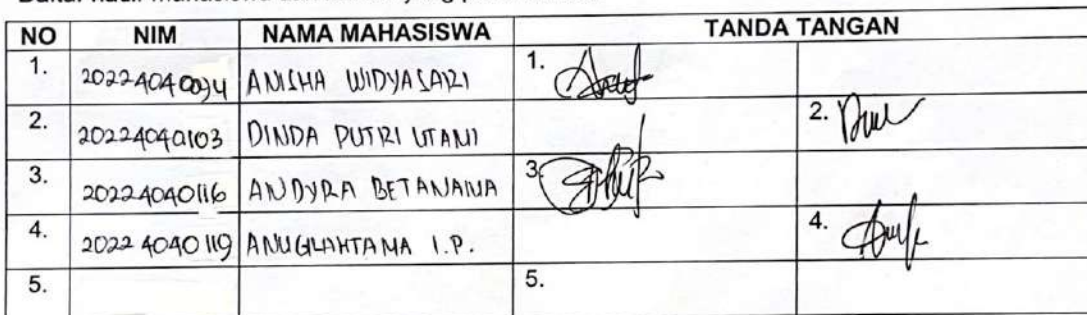 NO NIM NAMA MAHASISWA TANDA TANGAN
1. 20224040094 ANISHA WIDYASARI 1.
2. 20224040103 DINDA PUTRI UTAMI 2.
3. 20224040116 ANDYRA BETANAINA 3.
4. 20224040119 ANUGLAHTAMA I.P. 4.
5. 5.